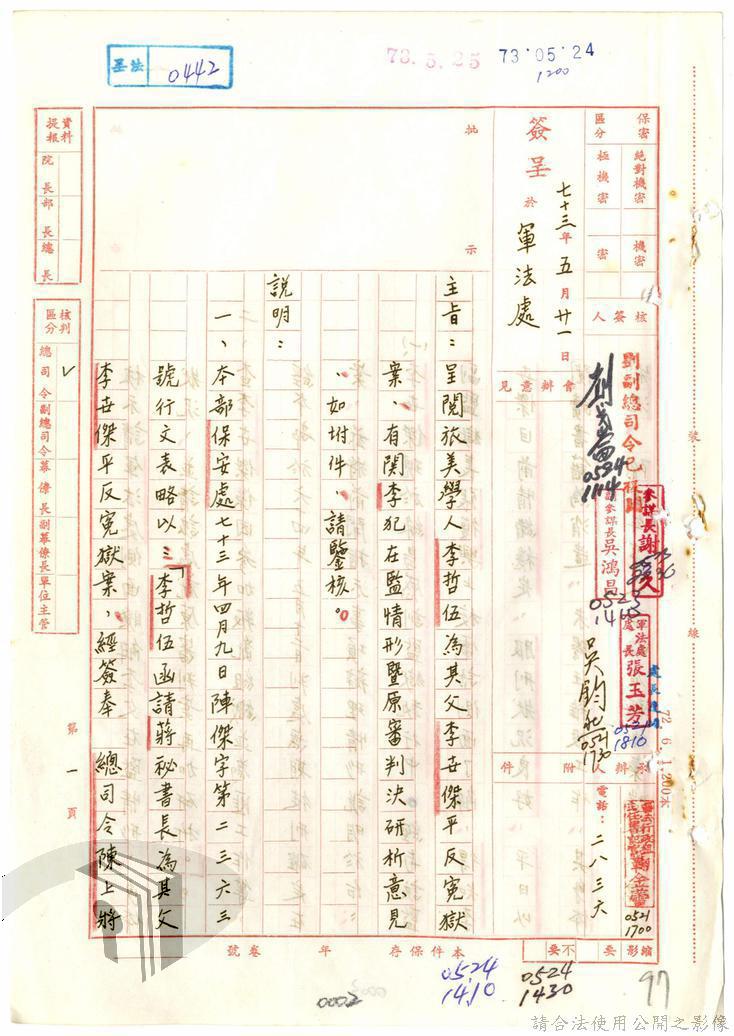 法墨
0442
73.5.25
73.05.24
1200
保密區分
絕對機密
極機密
機密
密
簽呈
於
軍法處
七十三年五月廿一日
核簽人
會辦意見
劉副總司令已核閱
0524
1114
參謀長謝
副參謀長吳鴻昌
0523
1440
軍法處處長張玉芳
0521
1810
吳鈞
0521
1730
承辦人
附件
電話：二八三六
0521
1700
批
示
主旨：呈閱旅美學人李哲伍為其父李世傑平反冤獄
案，有關李犯在監情形暨原審判決研析意見
，如坿件，請鑒核。
說明：
一、本部保安處七十三年四月九日陳傑字第二三六三
號行文表略以：「李哲伍函請蔣祕書長為其父
李世傑平反冤獄案，經簽奉　總司令陳上將
資料提報
院長
部長
總長
核判區分
總司令
副總司令
幕僚長
副幕僚長
單位主管
第一頁
裝
線
本件保存　年　卷號
縮影
要
不要
0524
1410
0524
1430
97
0002
請合法使用公開之影像